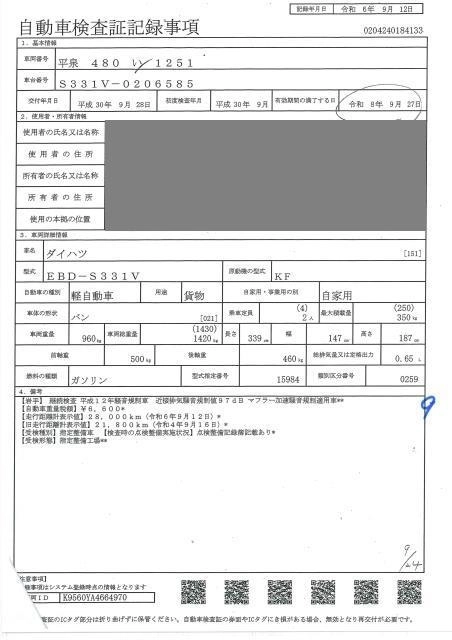 記録年月日 令和 6年 9月 12日
自動車検査証記録事項
0204240184133
1．基本情報
車両番号 平泉 480 い 1251
車台番号 S331V-0206585
交付年月日 平成30年 9月 28日 初度検査年月 平成30年 9月 有効期間の満了する日 令和 8年 9月 27日
2．使用者・所有者情報
使用者の氏名又は名称
使用者の住所
所有者の氏名又は名称
所有者の住所
使用の本拠の位置
3．車両詳細情報
車名 ダイハツ [151]
型式 EBD-S331V 原動機の型式 KF
自動車の種別 軽自動車 用途 貨物 自家用・事業用の別 自家用
車体の形状 バン [021] 乗車定員 (4) 2人 最大積載量 (250) 350kg
車両重量 960kg 車両総重量 (1430) 1420kg 長さ 339cm 幅 147cm 高さ 187cm
前軸重 500kg 後軸重 460kg 総排気量又は定格出力 0.65 L
燃料の種類 ガソリン 型式指定番号 15984 類別区分番号 0259
4．備考
【岩手】 継続検査 平成12年騒音規制車 近接排気騒音規制値97dB マフラー加速騒音規制適用車**
【自動車重量税額】¥6,600*
【走行距離計表示値】28,000km（令和6年9月12日）*
【旧走行距離計表示値】21,800km（令和4年9月16日）*
【受検種別】指定整備車 【検査時の点検整備実施状況】点検整備記録簿記載あり*
【受検形態】指定整備工場**
9
9/24
注意事項】
事項はシステム登録時点の情報となります
両ID K9560YA4664970
査証のICタグ部分は折り曲げずに保管ください。自動車検査証の券面やICタグにき損がある場合、無効となり再交付が必要です。